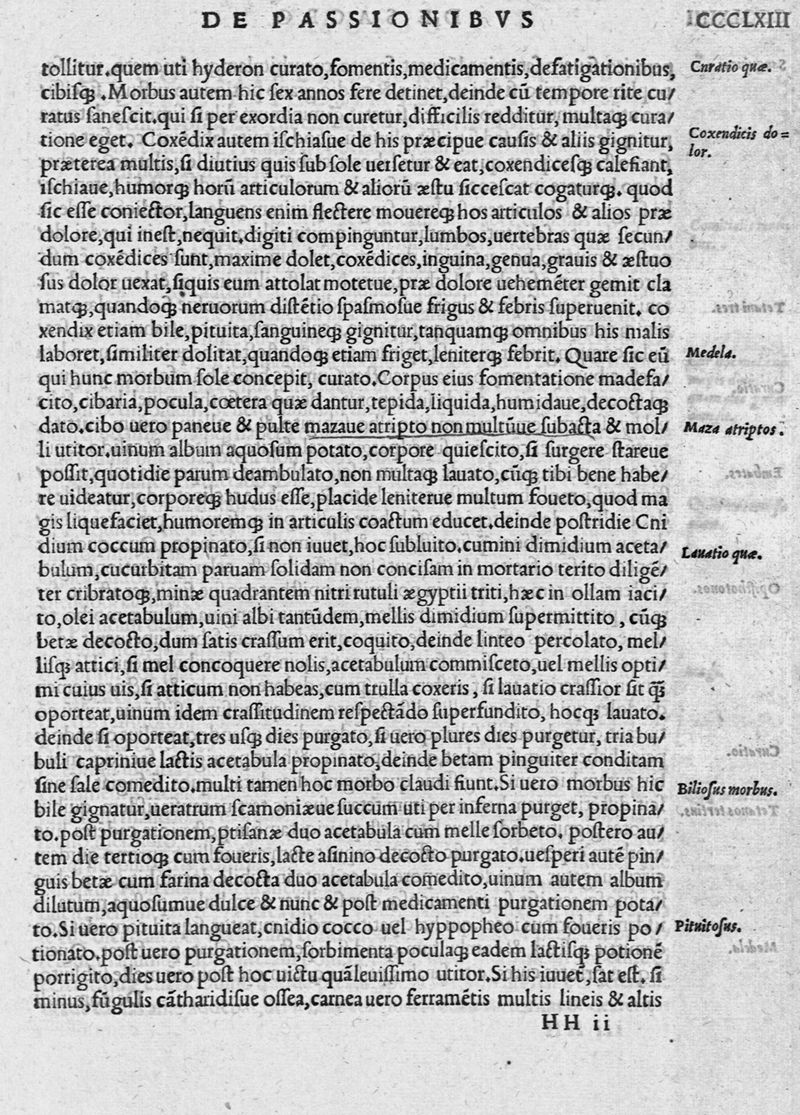 DE PASSIONIBVS
CCCLXIII
tollitur.quem uti hyderon curato,fomentis,medicamentis,defatigationibus,
Curatio quæ.
cibisq; .Morbus autem hic ſex annos fere detinet,deinde cū tempore rite cu/
ratus ſaneſcit.qui ſi per exordia non curetur,difficilis redditur, multaq; cura/
tione eget. Coxēdix autem iſchiaſue de his præcipue cauſis & aliis gignitur,
Coxendicis do=
lor.
præterea multis,ſi diutius quis ſub ſole uerſetur & eat,coxendiceſq; calefiant,
iſchiaue,humorq; horū articulorum & aliorū æſtu ſicceſcat cogaturq;. quod
ſic eſſe coniector,languens enim flectere mouereq; hos articulos & alios præ
dolore,qui ineſt,nequit.digiti compinguntur,lumbos,uertebras quæ ſecun/
dum coxēdices ſunt,maxime dolet,coxēdices,inguina,genua,grauis & æſtuo
ſus dolor uexat,ſiquis eum attolat motetue,præ dolore uehemēter gemit cla
matq;,quandoq; neruorum diſtētio ſpaſmoſue frigus & febris ſuperuenit. co
xendix etiam bile,pituita,ſanguineq; gignitur,tanquamq; omnibus his malis
laboret,ſimiliter dolitat,quandoq; etiam friget,leniterq; febrit. Quare ſic eū
Medela.
qui hunc morbum ſole concepit, curato.Corpus eius fomentatione madefa/
cito,cibaria,pocula,cœtera quæ dantur,tepida,liquida,humidaue,decoctaq;
dato.cibo uero paneue & pulte mazaue atripto non multūue ſubacta & mol/
Maza atriptos.
li utitor.uinum album aquoſum potato,corpore quieſcito,ſi ſurgere ſtareue
poſſit,quotidie parum deambulato,non multaq; lauato,cūq; tibi bene habe/
re uideatur,corporeq; hudus eſſe,placide leniterue multum foueto,quod ma
gis liquefaciet,humoremq; in articulis coactum educet.deinde poſtridie Cni
dium coccum propinato,ſi non iuuet,hoc ſubluito.cumini dimidium aceta/
Lauatio quæ.
bulum,cucurbitam paruam ſolidam non conciſam in mortario terito diligē/
ter cribratoq;,minæ quadrantem nitri rutuli ægyptii triti,hæc in ollam iaci/
to,olei acetabulum,uini albi tantūdem,mellis dimidium ſupermittito , cūq;
betæ decocto,dum ſatis craſſum erit,coquito,deinde linteo percolato, mel/
liſq; attici,ſi mel concoquere nolis,acetabulum commiſceto,uel mellis opti/
mi cuius uis,ſi atticum non habeas,cum trulla coxeris , ſi lauatio craſſior ſit q̄ȝ
oporteat,uinum idem craſſitudinem reſpectādo ſuperfundito, hocq; lauato.
deinde ſi oporteat,tres uſq; dies purgato,ſi uero plures dies purgetur, tria bu/
buli capriniue lactis acetabula propinato,deinde betam pinguiter conditam
ſine ſale comedito.multi tamen hoc morbo claudi fiunt.Si uero morbus hic
Bilioſus morbus.
bile gignatur,ueratrum ſcamoniæue ſuccum uti per inferna purget, propina/
to.poſt purgationem,ptiſanæ duo acetabula cum melle ſorbeto. poſtero au/
tem die tertioq; cum foueris,lacte aſinino decocto purgato.ueſperi autē pin/
guis betæ cum farina decocta duo acetabula comedito,uinum autem album
dilutum,aquoſumue dulce & nunc & poſt medicamenti purgationem pota/
to.Si uero pituita langueat,cnidio cocco uel hyppopheo cum foueris po /
Pituitoſus.
tionato.poſt uero purgationem,ſorbimenta poculaq; eadem lactiſq; potionē
porrigito,dies uero poſt hoc uictu quāleuiſſimo utitor.Si his iuuet,ſat eſt. ſi
minus,fūgulis cātharidiſue oſſea,carnea uero ferramētis multis lineis & altis
HH ii